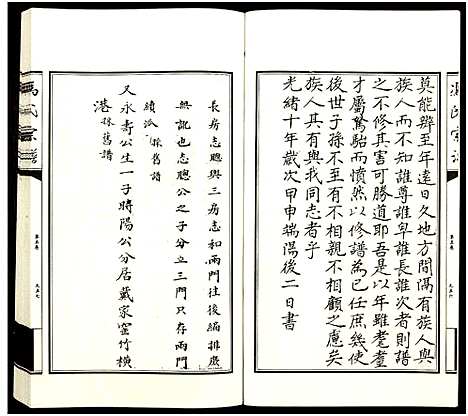 莫能辨至年遠日久地方間隔有族人與
族人而不知誰尊誰卑誰長誰次者則譜
之不修其害可勝道耶吾是以年雖耄耋
才屬駑駘而憤然以修譜為已任庶幾使
後世子孫不至有不相親不相顧之慮矣
族人其有與我同志者乎
光緒十年歲次甲申端陽後二日書
長房志聰與三房志和兩門往後編排處
無訛也志聰公之子分立三門只存兩門
續派 採舊譜
又永壽公生一子時陽公分居戴家窰竹橫
港 採舊譜